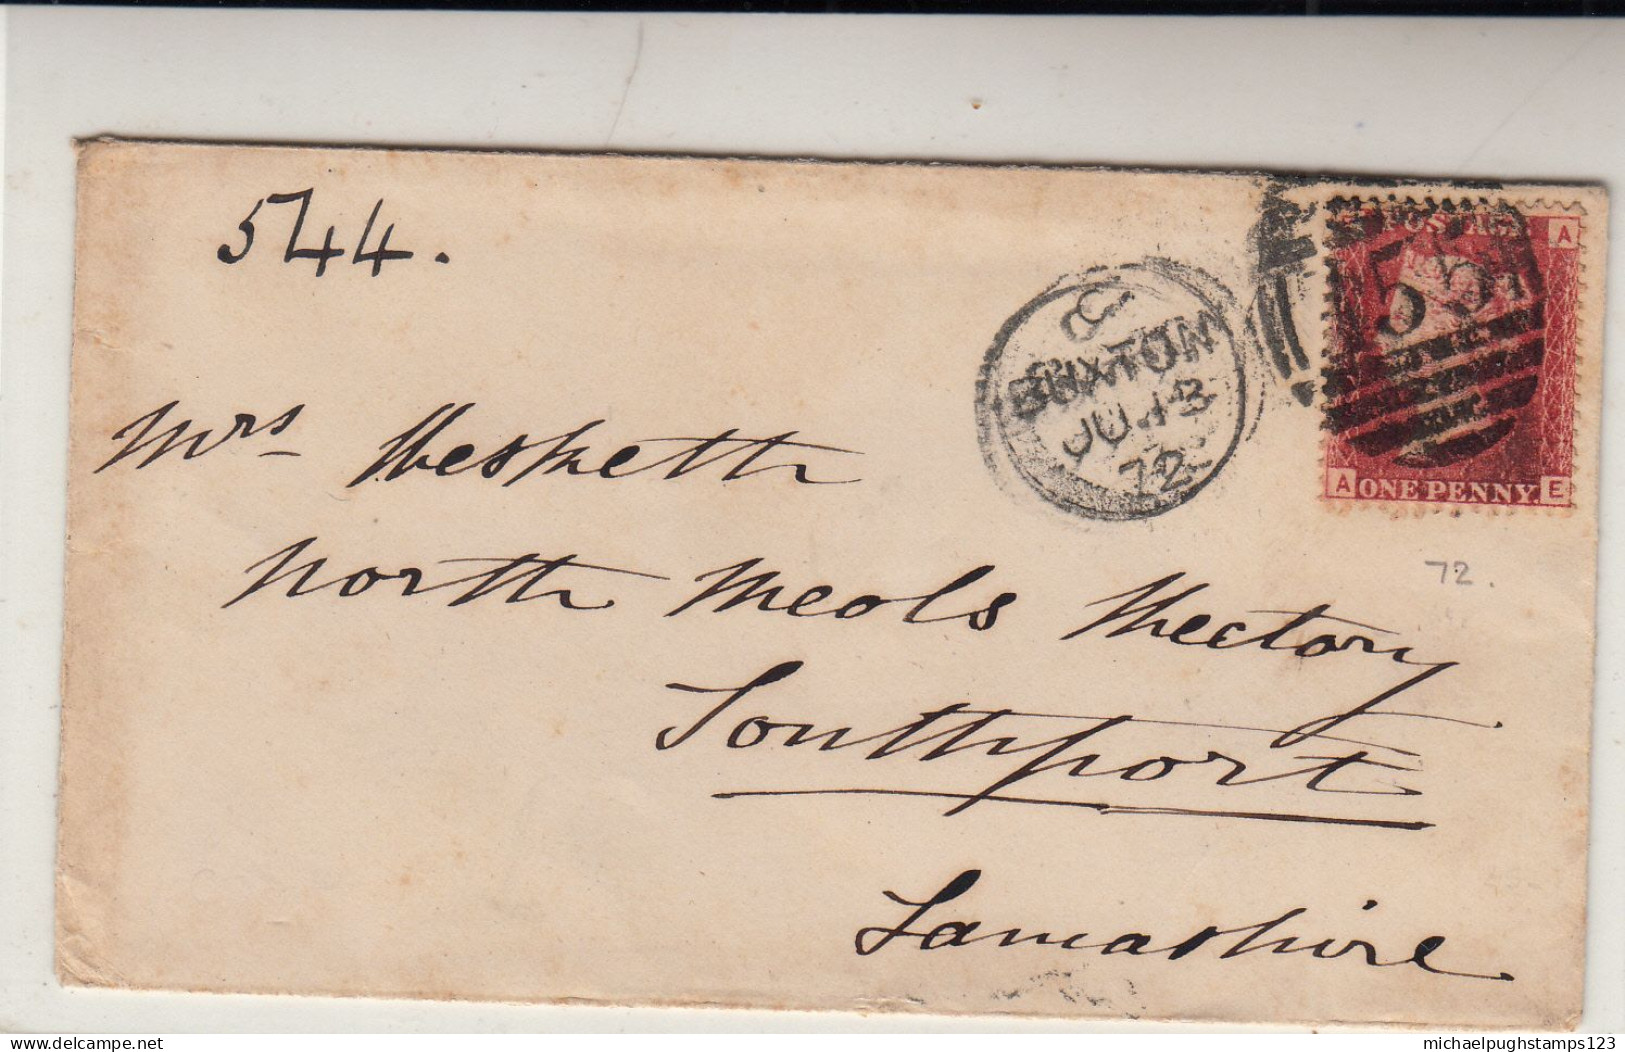 544.
C
BUXTON
JU 13
72
POSTAGE
A
A ONE PENNY. E
Mrs Hesketh
North Meols Rectory
Southport
Lancashire
72.
michaelpughstamps123